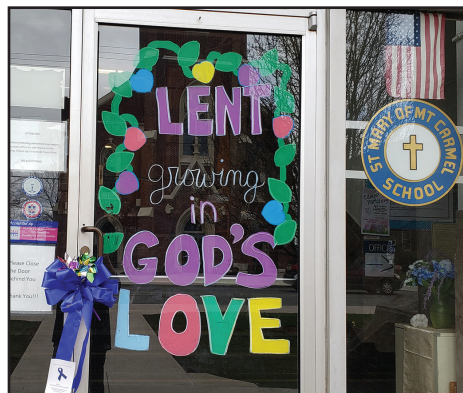 LENT
growing
in
GOD'S
LOVE
ST MARY OF MT CARMEL
SCHOOL
OFFICE
Please Close
the Door
Behind You
Thank You!!!